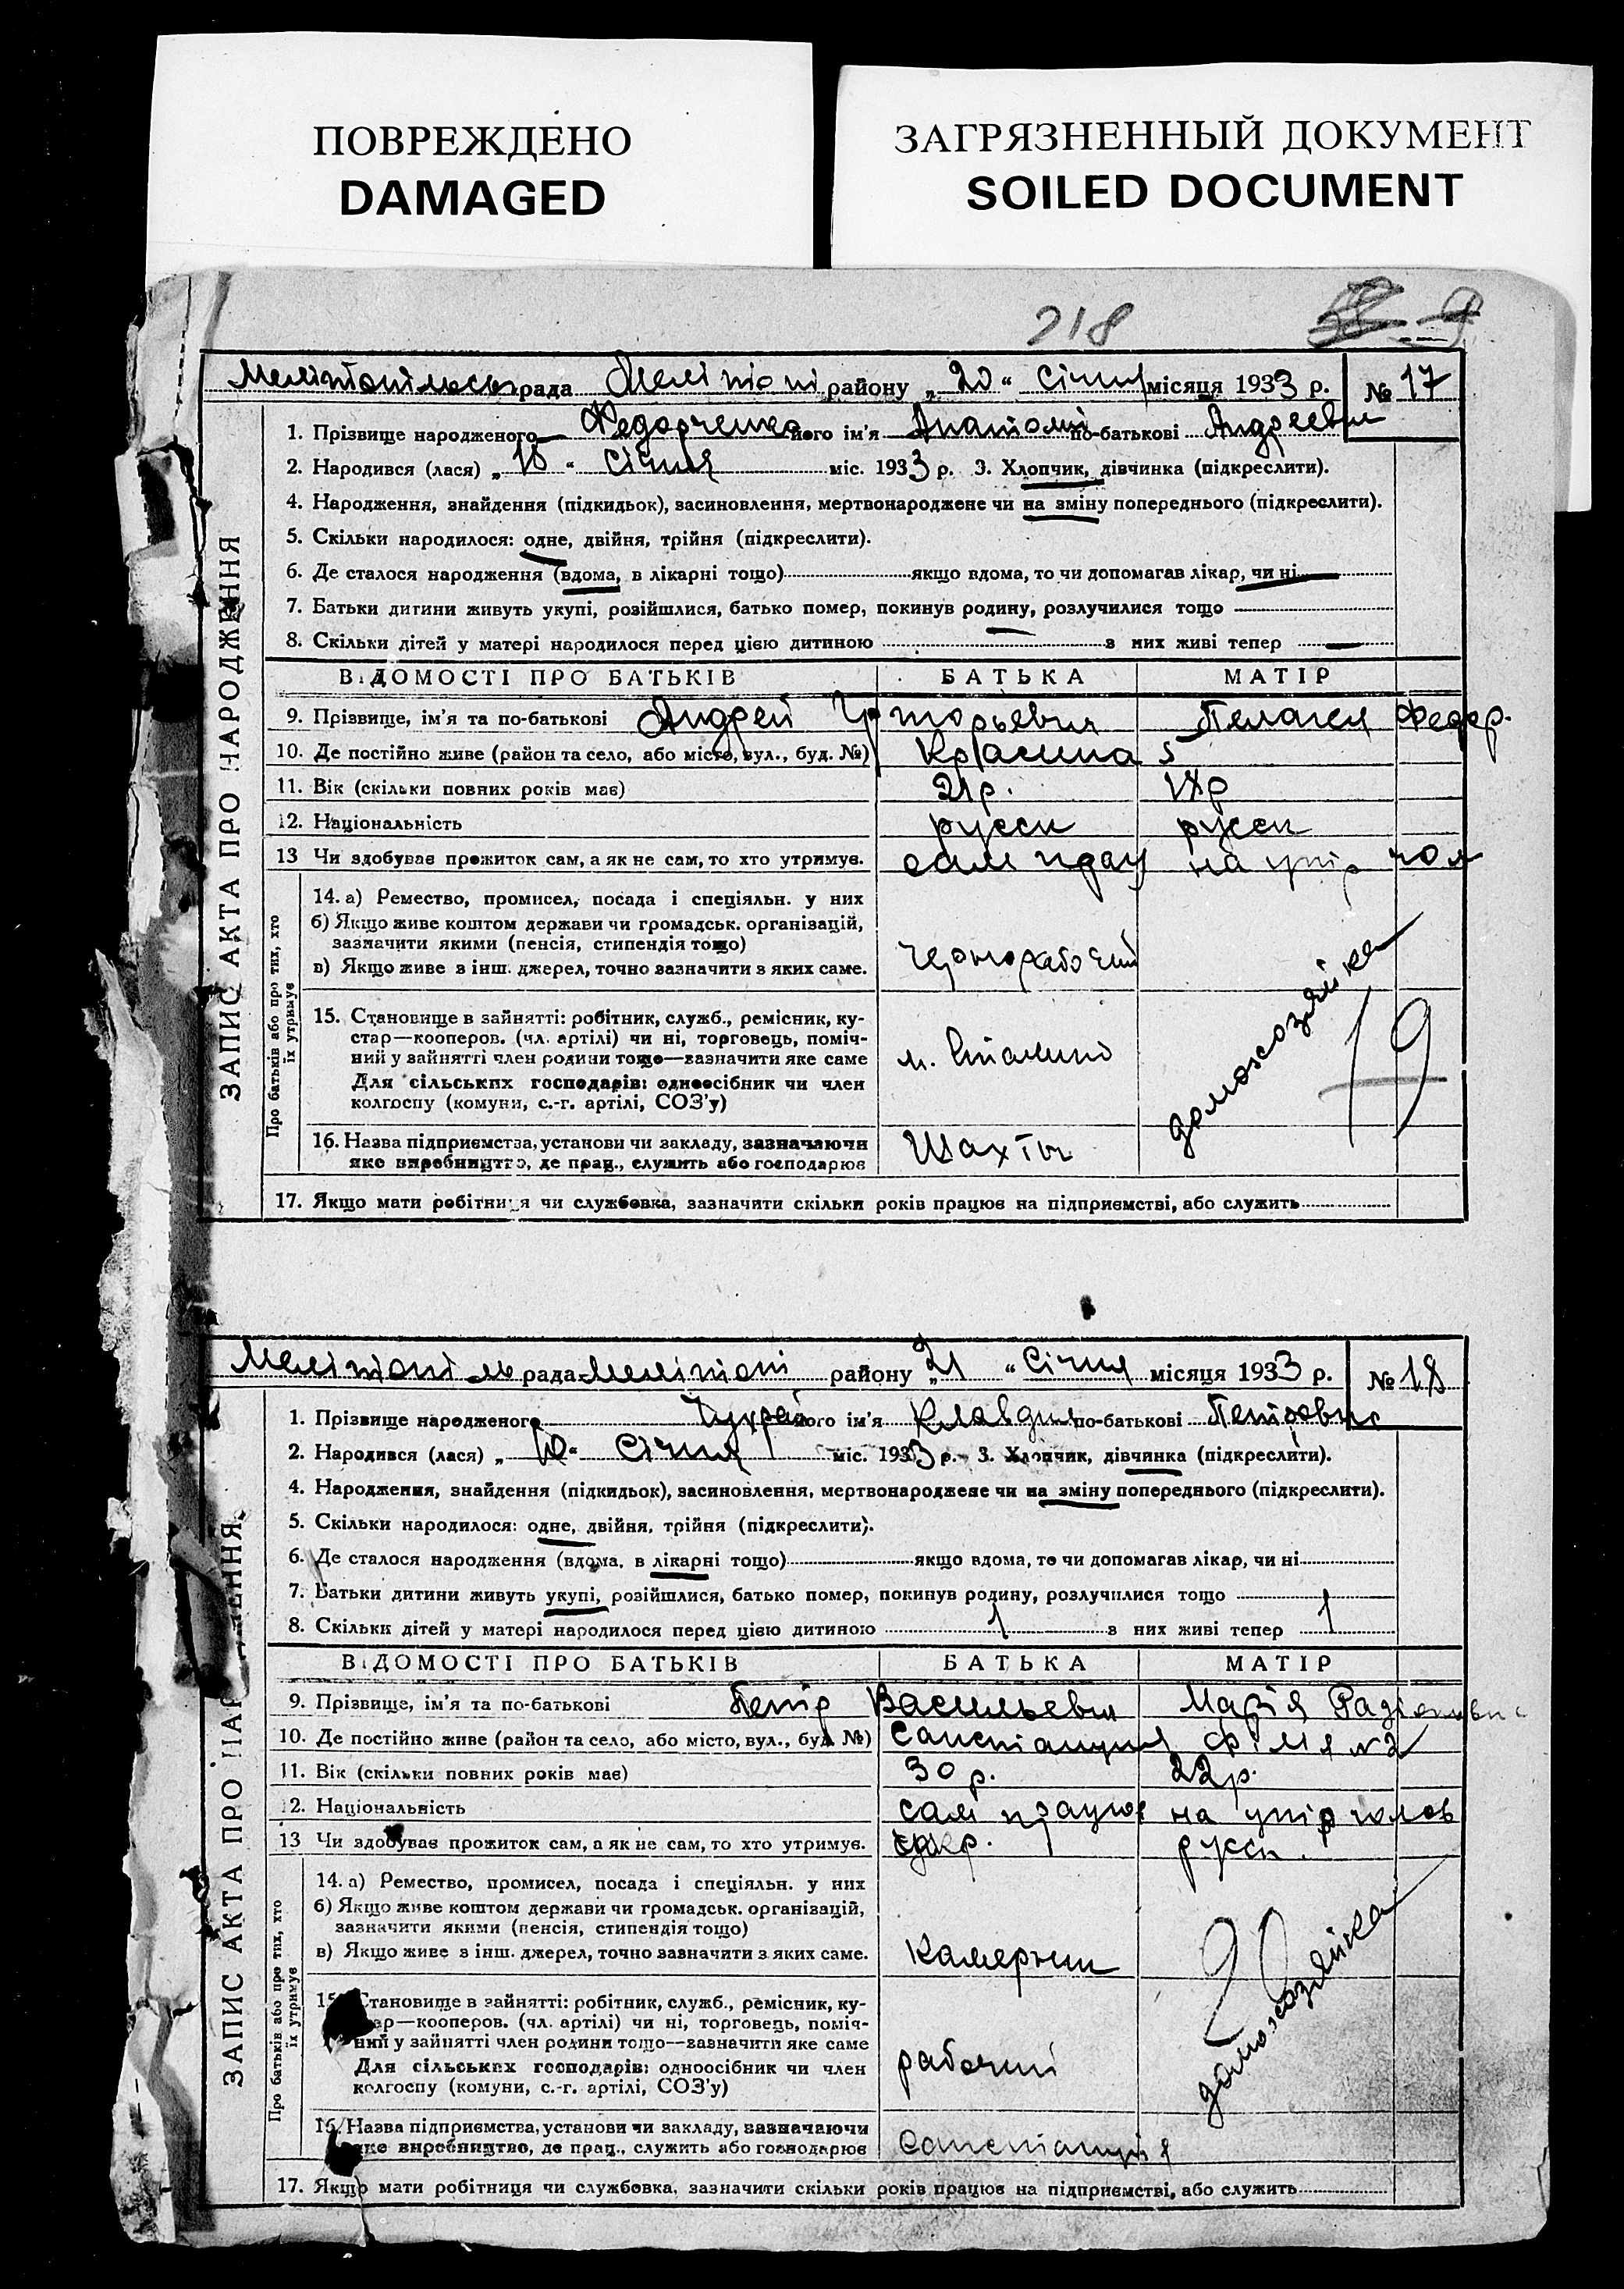 ПОВРЕЖДЕНО
DAMAGED
ЗАГРЯЗНЕННЫЙ ДОКУМЕНТ
SOILED DOCUMENT
218
рада Мелітопі району „20“ Січня місяця 1933 р. № 17
1. Прізвище народженого Федорченко його ім'я Анатолий по-батькові Андреевич
2. Народився (лася) „18“ Січня міс. 1933 р. 3. Хлопчик, дівчинка (підкреслити).
4. Народження, знайдення (підкидьок), засиновлення, мертвонароджене чи на зміну попереднього (підкреслити).
5. Скільки народилося: одне, двійня, трійня (підкреслити).
6. Де сталося народження (вдома, в лікарні тощо) якщо вдома, то чи допомагав лікар, чи ні
7. Батьки дитини живуть укупі, розійшлися, батько помер, покинув родину, розлучилися тощо
8. Скільки дітей у матері народилося перед цією дитиною з них живі тепер
ЗАПИС АКТА ПРО НАРОДЖЕННЯ
ВІДОМОСТІ ПРО БАТЬКІВ БАТЬКА МАТІР
9. Прізвище, ім'я та по-батькові Андрей Григорьевич Пелагея Федор.
10. Де постійно живе (район та село, або місто, вул., буд. №) Красина 5
11. Вік (скільки повних років має) 21р. 18р
12. Національність русск русск
13 Чи здобуває прожиток сам, а як не сам, то хто утримує. сам прац на утр чол
Про батьків або про тих, хто їх утримує
14. а) Ремество, промисел, посада і спеціяльн. у них
б) Якщо живе коштом держави чи громадськ. організацій,
зазначити якими (пенсія, стипендія тощо)
в) Якщо живе з інш. джерел, точно зазначити з яких саме. чернорабочий
домохозяйка
19
15. Становище в зайнятті: робітник, служб., ремісник, ку-
стар—кооперов. (чл. артілі) чи ні, торговець, поміч-
ний у зайнятті член родини тощо—зазначити яке саме м. Сталино
Для сільських господарів: одноосібник чи член
колгоспу (комуни, с.-г. артілі, СОЗ'у)
16. Назва підприємства, установи чи закладу, зазначаючи Шахты
яке виробництво, де прац., служить або господарює
17. Якщо мати робітниця чи службовка, зазначити скільки років працює на підприємстві, або служить
Мелітопіль рада Мелітопі району „21“ Січня місяця 1933 р. № 18
1. Прізвище народженого його ім'я Клавдия по-батькові Петровна
2. Народився (лася) „10“ Січня міс. 1933 р. 3. Хлопчик, дівчинка (підкреслити).
4. Народження, знайдення (підкидьок), засиновлення, мертвонароджене чи на зміну попереднього (підкреслити).
5. Скільки народилося: одне, двійня, трійня (підкреслити).
6. Де сталося народження (вдома, в лікарні тощо) якщо вдома, то чи допомагав лікар, чи ні
7. Батьки дитини живуть укупі, розійшлися, батько помер, покинув родину, розлучилися тощо
8. Скільки дітей у матері народилося перед цією дитиною 1 з них живі тепер 1
ЗАПИС АКТА ПРО
ВІДОМОСТІ ПРО БАТЬКІВ БАТЬКА МАТІР
9. Прізвище, ім'я та по-батькові Петір Васильевич Марія
10. Де постійно живе (район та село, або місто, вул., буд. №) Санстанция №2
11. Вік (скільки повних років має) 30 р. 22р.
12. Національність сам працює на утр чолов
13 Чи здобуває прожиток сам, а як не сам, то хто утримує. укр. русск.
Про батьків або про тих, хто їх утримує
14. а) Ремество, промисел, посада і спеціяльн. у них
б) Якщо живе коштом держави чи громадськ. організацій,
зазначити якими (пенсія, стипендія тощо)
в) Якщо живе з інш. джерел, точно зазначити з яких саме. камерник
домохозяйка
20
15. Становище в зайнятті: робітник, служб., ремісник, ку-
стар—кооперов. (чл. артілі) чи ні, торговець, поміч-
ний у зайнятті член родини тощо—зазначити яке саме рабочий
Для сільських господарів: одноосібник чи член
колгоспу (комуни, с.-г. артілі, СОЗ'у)
16. Назва підприємства, установи чи закладу, зазначаючи Санстанція
яке виробництво, де прац., служить або господарює
17. Якщо мати робітниця чи службовка, зазначити скільки років працює на підприємстві, або служить